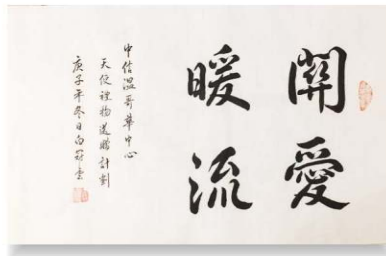 關愛
暖流
中信溫哥華中心
天使禮物送贈計劃
庚子年冬日白雲